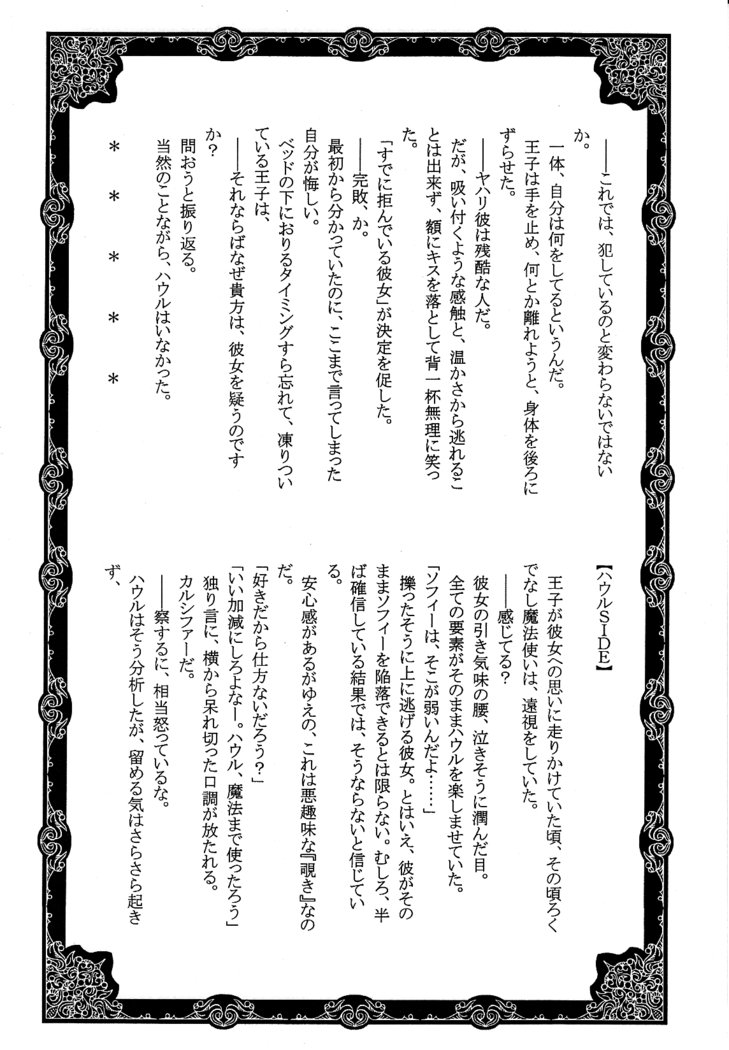 ――これでは、犯しているのと変わらないではない
か。
一体、自分は何をしてるというんだ。
王子は手を止め、何とか離れようと、身体を後ろに
ずらせた。
――ヤハリ彼は残酷な人だ。
だが、吸い付くような感触と、温かさから逃れるこ
とは出来ず、額にキスを落として背一杯無理に笑っ
た。
「すでに拒んでいる彼女」が決定を促した。
――完敗、か。
最初から分かっていたのに、ここまで言ってしまった
自分が悔しい。
ベッドの下におりるタイミングすら忘れて、凍りつい
ている王子は、
――それならばなぜ貴方は、彼女を疑うのです
か？
問おうと振り返る。
当然のことながら、ハウルはいなかった。
＊　＊　＊　＊　＊
【ハウルＳＩＤＥ】
王子が彼女への思いに走りかけていた頃、その頃ろく
でなし魔法使いは、遠視をしていた。
――感じてる？
彼女の引き気味の腰、泣きそうに潤んだ目。
全ての要素がそのままハウルを楽しませていた。
「ソフィーは、そこが弱いんだよ……」
擽ったそうに上に逃げる彼女。とはいえ、彼がその
ままソフィーを陥落できるとは限らない。むしろ、半
ば確信している結果では、そうならないと信じてい
る。
安心感があるがゆえの、これは悪趣味な『覗き』なの
だ。
「好きだから仕方ないだろう？」
「いい加減にしろよなー。ハウル、魔法まで使ったろう」
独り言に、横から呆れ切った口調が放たれる。
カルシファーだ。
――察するに、相当怒っているな。
ハウルはそう分析したが、留める気はさらさら起き
ず、